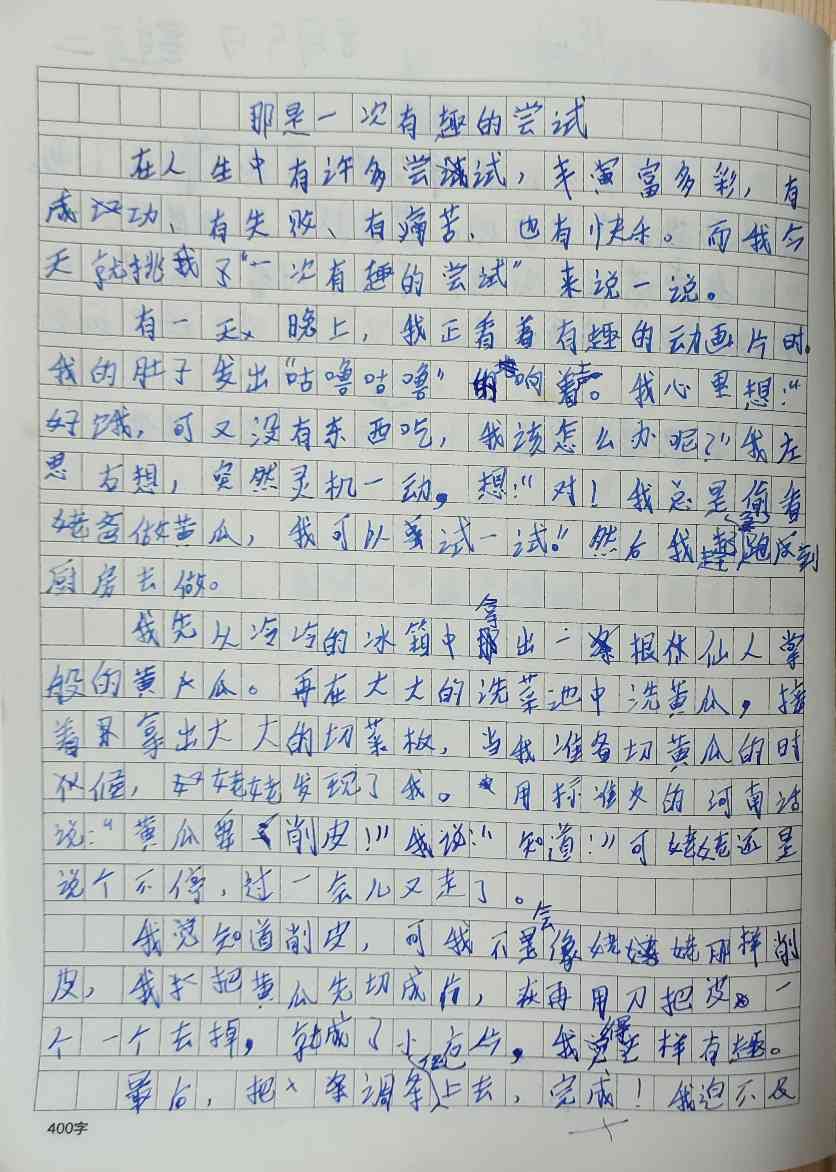 那是一次有趣的尝试
在人生中有许多尝试,丰富多彩,有
成功、有失败、有痛苦、也有快乐。而我今
天就挑我了“一次有趣的尝试”来说一说。
有一天晚上,我正看着有趣的动画片时。
我的肚子发出“咕噜咕噜”的响声。我心里想:“
好饿,可又没有东西吃,我该怎么办呢?”我左
思右想,突然灵机一动,想:“对!我总是偷看
姥爷做黄瓜,我可以试一试。”然后我跑到
厨房去做。
我先从冷冷的冰箱中拿出一根像仙人掌
般的黄瓜。再在大大的洗菜池中洗黄瓜,接
着拿出大大的切菜板,当我准备切黄瓜的时
候,姥姥发现了我。用标准的河南话
说:“黄瓜要削皮!”我说:“知道!”可姥姥还是
说个不停,过一会儿又走了。
我说知道削皮,可我不会像姥姥那样削
皮,我把黄瓜先切成片,再用刀把皮一
个一个去掉,就成了小片,我觉得这样有趣。
最后,把调条上去,完成!我迫不及
400字